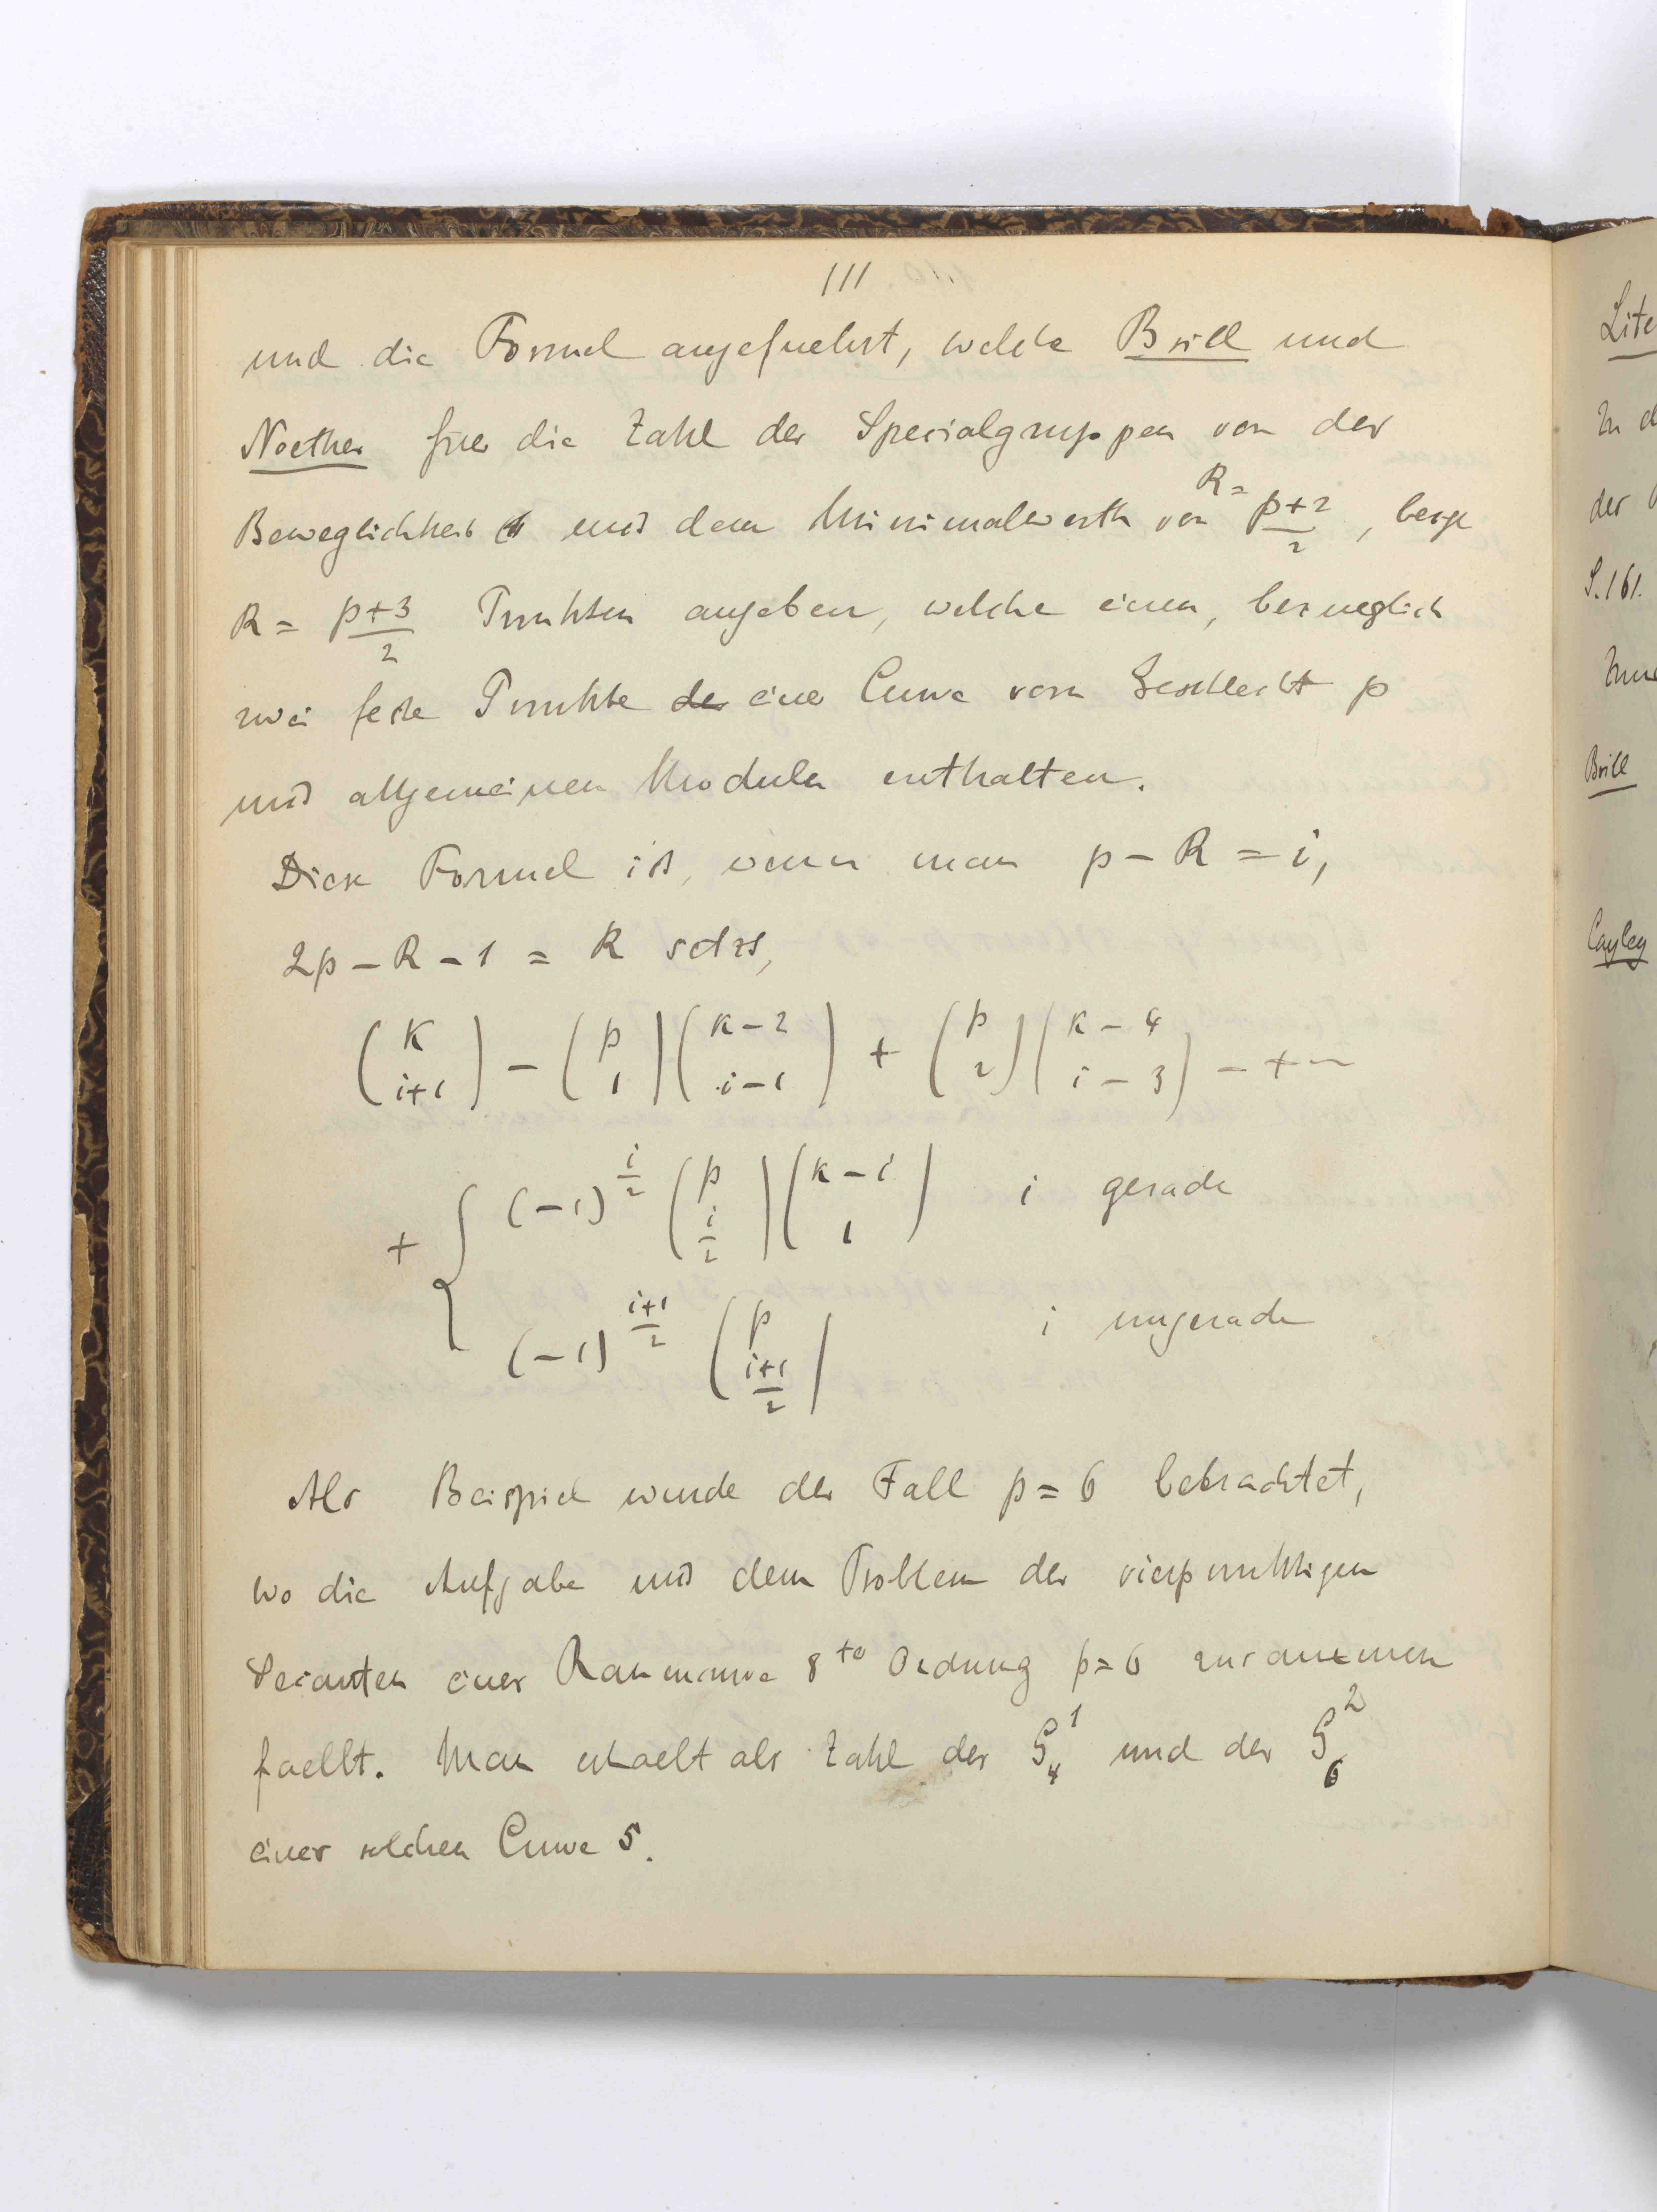 111
und die Formel angefuehrt, welche Brill und
Noether fuer die Zahl der Specialgruppen von der
Beweglichkeit 1 und dem Minimalwerth von R = p+2/2, bezw
R = p+3/2 Punkten angeben, welche einen, bezueglich
zwei feste Punkte der einer Curve vom Geschlecht p
und allgemeinen Moduln enthalten.
Diese Formel ist, wenn man p – R = i,
2p – R – 1 = K setzt,
(K i+1) – (p 1)(K–2 i–1) + (p 2)(K–4 i–3) – + –
+ { (–1)^{i/2} (p i/2)(K–i 1) i gerade
(–1)^{i+1/2} (p i+1/2) i ungerade
Als Beispiel wurde der Fall p = 6 betrachtet,
wo die Aufgabe mit dem Problem der vierpunktigen
Secanten einer Raumcurve 8ter Ordnung p = 6 zusammen
faellt. Man erhaelt als Zahl der G_4^1 und der G_6^2
einer solchen Curve 5.
Lite
In d
der
S. 161.
Brill
Cayley